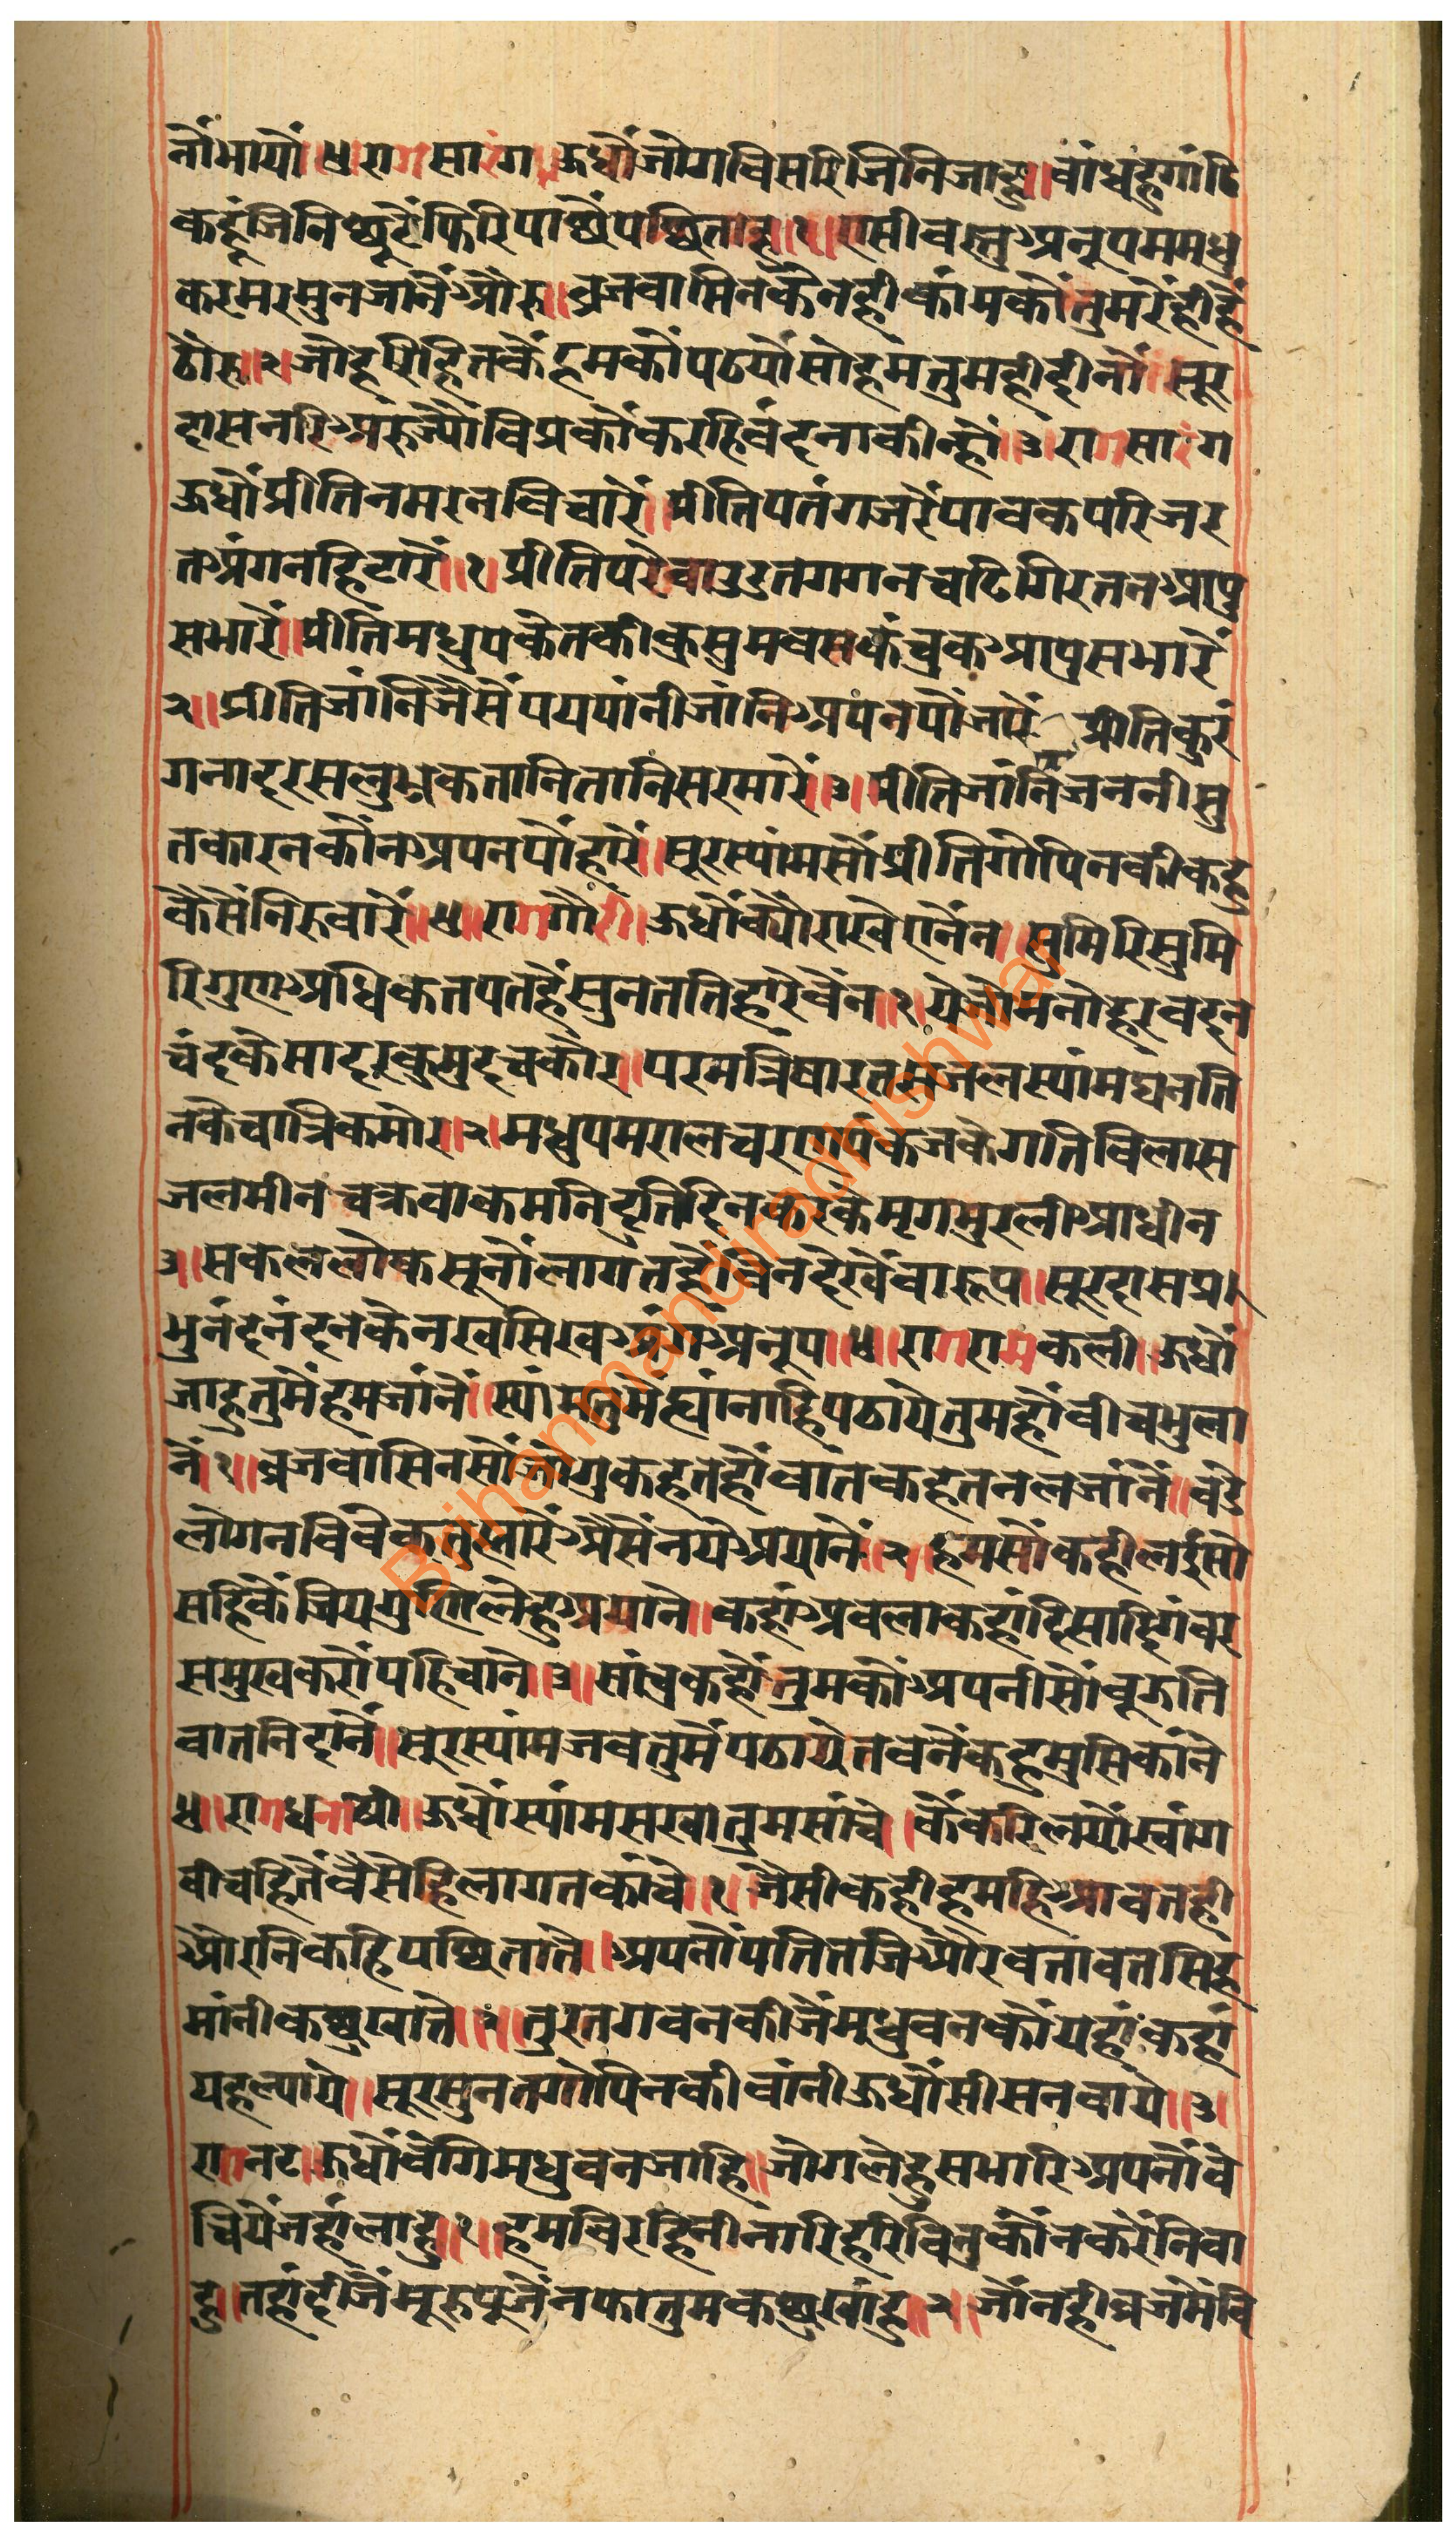 नौंभायौं॥४॥रागसारंग॥ऊधौंजोगविसरिजिनिजाहु॥वांधहुगांठि
कहूंजिनिछूटैंफिरिपाछैंपछिताहू॥१॥एसीवस्तुअनूपममधु
करमरमुनजांनैंऔरु॥व्रजवासिनकैंनहीकांमकीतुमरेंहीहैं
ठौरु॥२॥जोहरिहितकैंहमकौंपठयौसोहमतुमहीदीनौं॥सूर
दासनरिअरुज्यौंविप्रकौंकरहिवंदनाकीन्हौं॥३॥रागसारंग
ऊधौंप्रीतिनमरनविचारैं॥प्रीतिपतंगजरैंपावकपरिजर
तअंगनहिटारैं॥१॥प्रीतिपरेवाउडतगगनचढिगिरतनआपु
सभारैं॥प्रीतिमधुपकेतकीकुसुमवसकंचुकआपुसभारैं
२॥प्रीतिजांनिजैसैंपयपांनीजांनिअपनपौंजारैं प्रीतिकुरं
गनादरसलुब्धकतानितानिसरमारैं॥३॥प्रीतिजांनिंजननीसु
तकारनकौंनअपनपौंहारैं॥सूरस्यांमसौंप्रीतिगोपिनकीकहु
कैसैंनिरुवारैं॥४॥रागगौरी॥ऊधौंक्यौराखेएनैंन॥सुमिरिसुमि
रिगुणअधिकतपतहैंसुनततिहारेवैंन॥१॥येजोमनोहरवदन
चंदकेसादरकुमुदचकोर॥परमत्रिषारतसजलस्यांमघनति
नकेचात्रिकमोर॥२॥मधुपमरालचरणपंकजकेगतिविलास
जलमीन चक्रवाकमनिदुतिदिनकरकेमृगमुरलीआधीन
३॥सकललोकसूनोंलागतहैंविनदेखेंवारूप॥सूरदासप्र
भुनंदनंदनकेनखसिखअंगअनूप॥४॥रागरामकली॥ऊधौं
जाहुतुमैंहमजांनें॥स्यांमतुमैंह्यांनाहिपठायेतुमहौंवीचभुला
नें॥१॥व्रजवासिनसौंजोगुकहतहौंवातकहतनलजांनें॥वडे
लोगनविवेकतुह्मारेंऐसेंनयेअयानें॥२॥हमसौंकहीलईसो
सहिकेंजियगुणिलेहुअयाने॥कहांअवलाकहांदिसादिगंवर
समुखकरौंपहिचाने॥३॥सांचुकहौंतुमकौंअपनीसौंवूजति
वातनिदानें॥सूरस्यांमजवतुमैंपठायेतवनैंकहुमुसिकांने
४॥रागधनाश्री॥ऊधौंस्यांमसखातुमसांचे॥कैंकरिलयौस्वांग
वीचहितैंवैसेहिलागतकांचे॥१॥जैसीकहीहमहिआवतही
औरनिकहिपछिताते॥अपनौंपतितजिऔरवतावतमिह
मांनीकछुखाते॥२॥तुरतगवनकीजैंमधुवनकौंयहांकहां
यहल्याये॥सूरसुनतगोपिनकीवांनीऊधौंसीसनवाये॥३॥
रागनट॥ऊधौंवेगिमधुवनजाहि॥जोगलेहुसभारिअपनौंवे
चियेंजहांलाहु॥१॥हमविरहिनीनारिहरिविनुकौंनकरेंनिवा
हु॥तहांदीजैंमूरुपूजैंनफातुमकछुखांहु॥२॥जौंनहीव्रजमेंवि